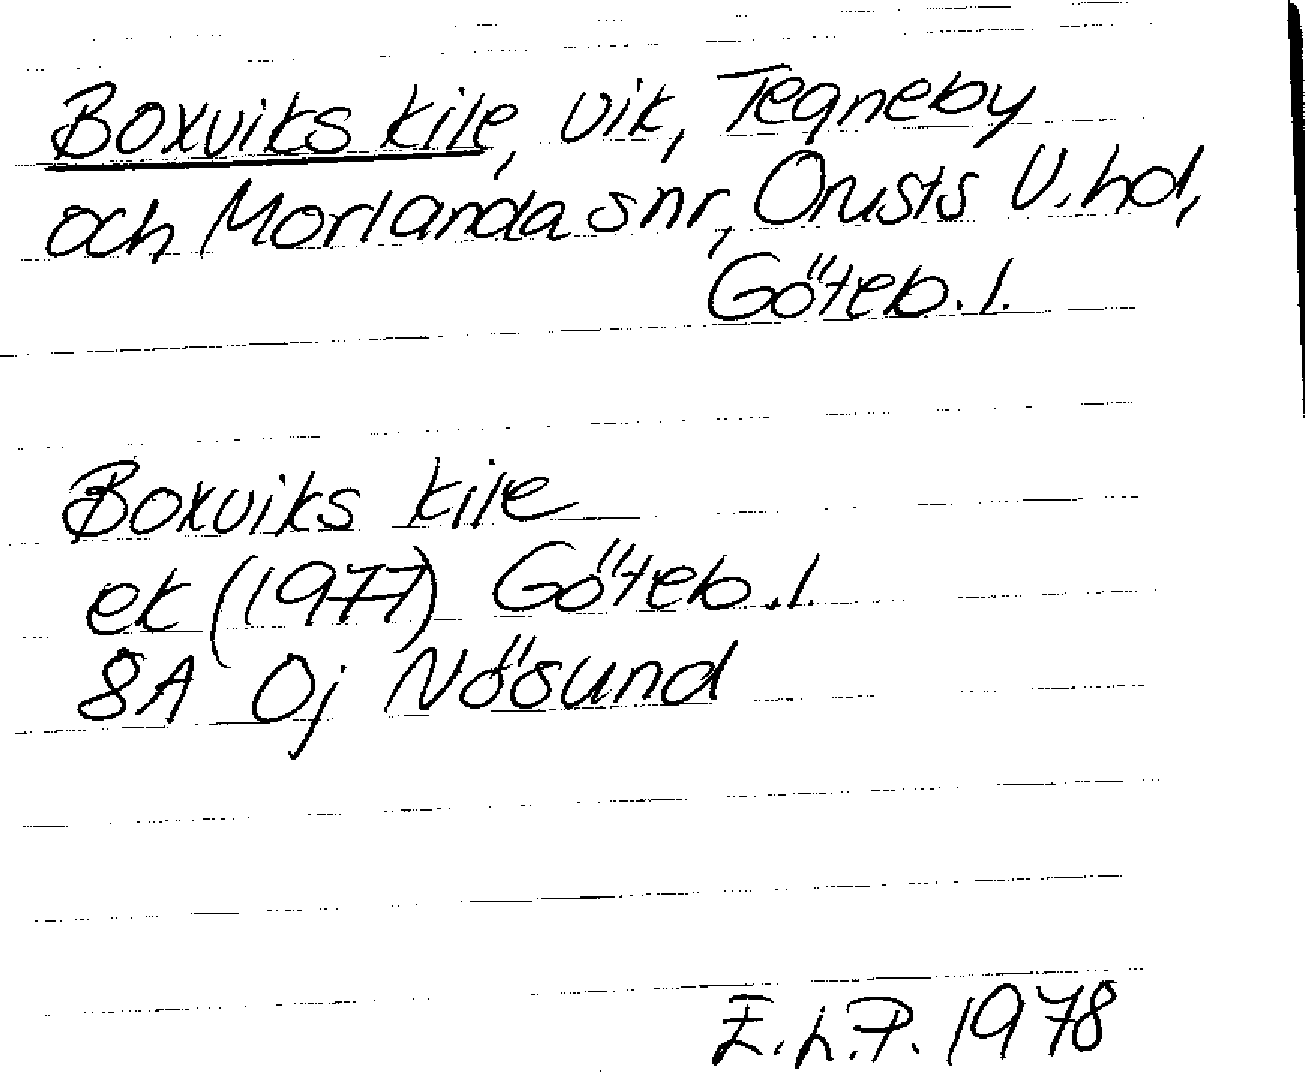 Boxviks kile, vik, Tegneby
och Morlanda snr, Orusts V. hd,
Göteb. l.
Boxviks kile
ek (1977) Göteb. l.
8A Oj Nösund
E.L.P. 1978